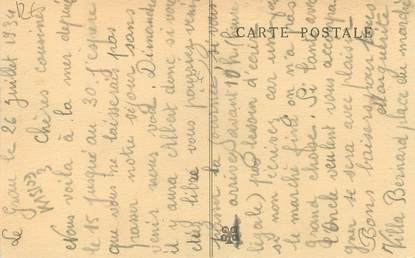 CARTE POSTALE
12€
Le Grau le 26 Juillet 1934
Chères cousines
Nous voilà à la mer depuis
le 15 jusqu'au 30 J'espère
que vous ne laisserais pas
passer notre séjour sans
venir nous voir. Dimanche
il y aura Albert donc si vous
êtes libre vous pouvez venir
passer la journée, si vous
arrivez avant 10 h (heure
légale) pas besoin d'écrire
si non écrivez car une fois
le marché fini on n'a pas
grand chose. Si tante avec
l'oncle veulent vous accompagner
se sera avec plaisir
Bons baisers pour tous
Marguerite
Villa Bernard place du marché